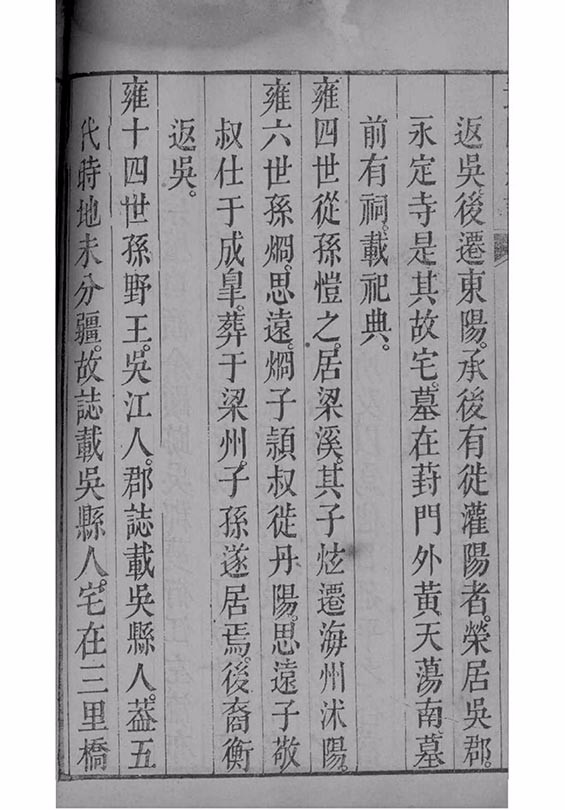 返吳。後遷東陽。承後有徙灌陽者。榮居吳郡。
永定寺是其故宅。墓在葑門外黃天蕩南。墓
前有祠。載祀典。
雍四世從孫愷之。居梁溪。其子炫遷海州沭陽。
雍六世孫烱。思遠。烱子頴叔徙丹陽。思遠子敬
叔仕于成皐。葬于梁州。子孫遂居焉。後裔衡
返吳。
雍十四世孫野王。吳江人。郡誌載吳縣人。葢五
代時地未分疆。故誌載吳縣人。宅在三里橋